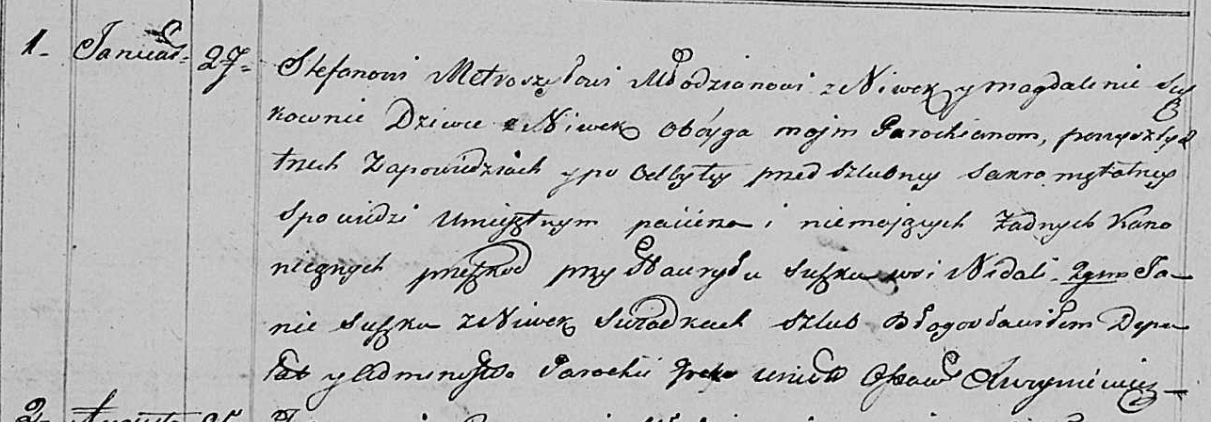 1. Januar. 27. Stefanowi Metroszyłowi Młodzianowi z Niwek y Magdalenie Susz
kownie Dziewce z Niwek oboyga moim Parochianom, po wyszłych
trzech Zapowiedziach y po odbytey przed szlubney Sakramętalney
Spowiedzi umieiętnym pacierza i niemaiących żadnych Kano
nicznych przeszkod przy Hawryłu Suszku wsi Nidali 2gim Ja
nie Suszku z Niwek Swiadkach szlub Błogosławiłem
y Administ Parochii
2 Augusta